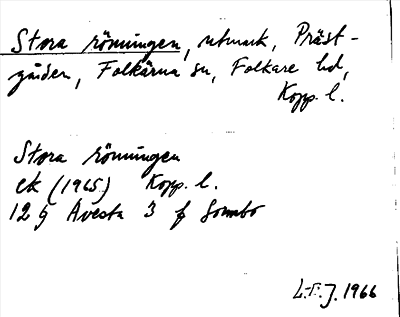 Stora röningen, utmark, Präst-
gården, Folkärna sn, Folkare hd,
Kopp. l.
Stora röningen
ek (1965) Kopp. l.
12 G Avesta 3 f
L.E.J. 1966